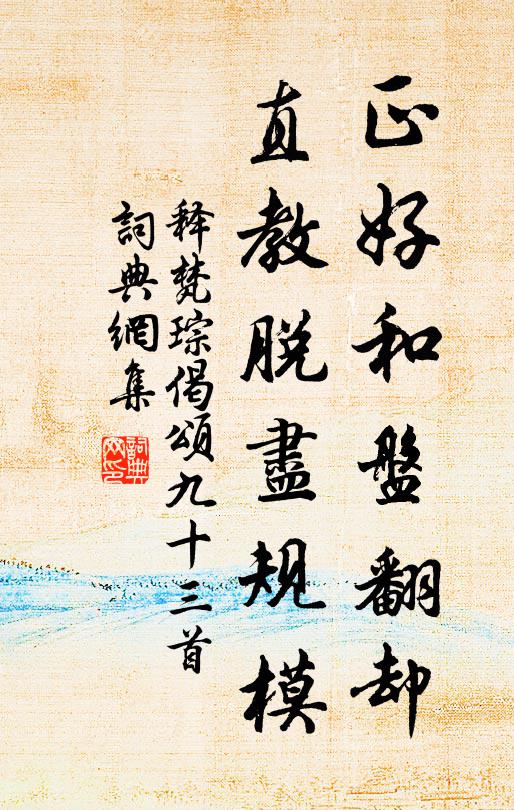 正好和盤翻却
直教脱盡規模
释梵琮偈頌九十三首
詞典網集
詞典
网印